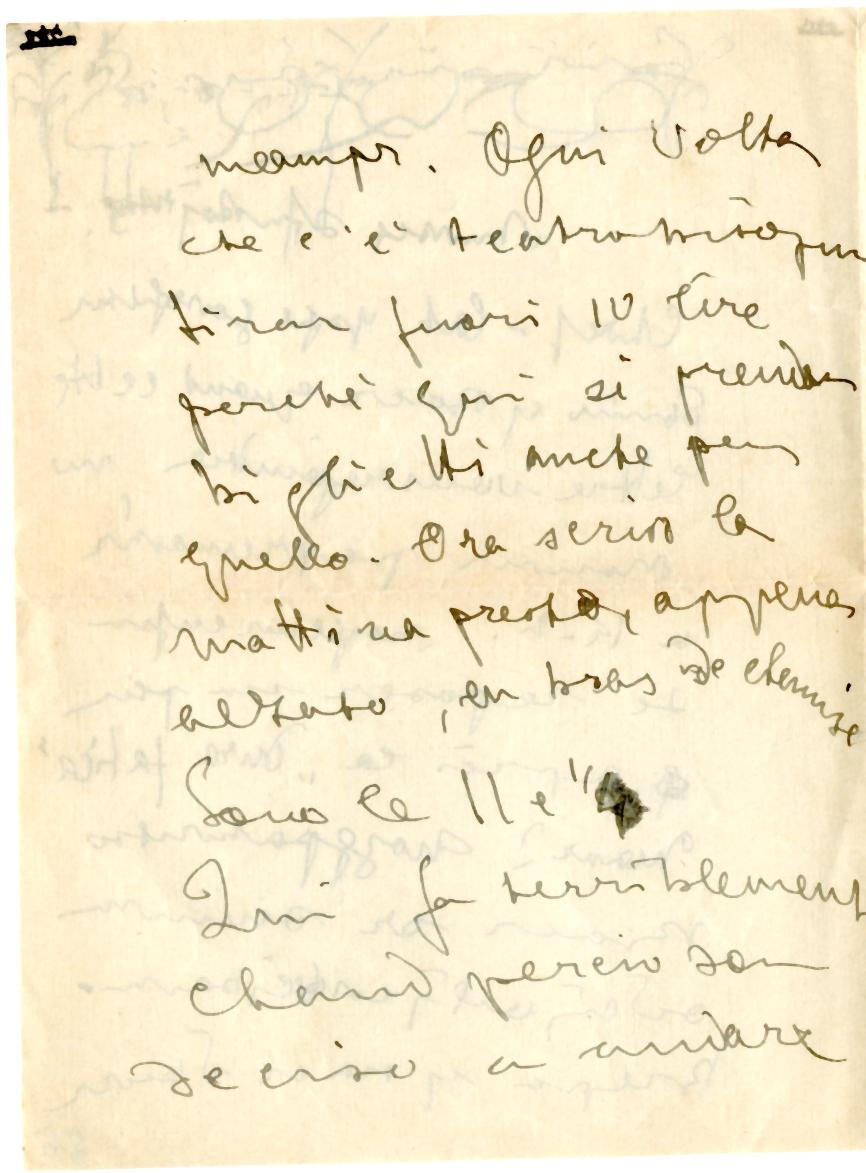 Ogni volta
che c'è teatro bisogn
tirar fuori 10 lire
perchè qui si prendon
biglietti anche per
quello. Ora scrivo la
mattina presto, appena
alzato, en bras de chemise
Sono le 11 e
Qui fa terriblement
chaud perciò son
deciso a andare